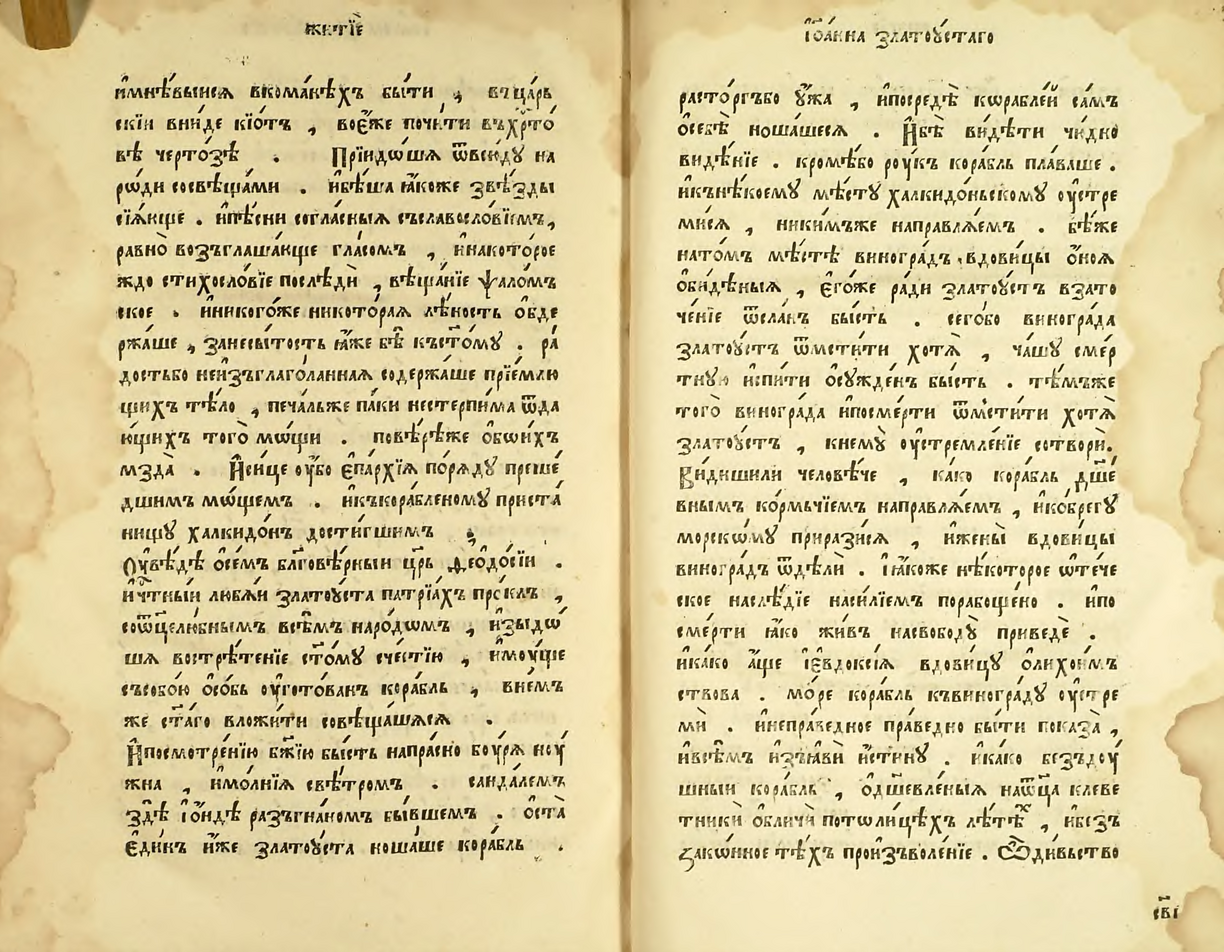 житїе
и҆мнѣ́вшисѧ вкома́нѣхъ бы́ти , въца́рь
скїи вни́де кїо́тъ , вое́же почи́ти въхр҇то́
вѣ черто́зѣ . Прїидо́шѧ ѿвсю́дꙋ на
рѡ́ди сосвѣща́ми . и҆бѣ́ша ꙗ҆́коже ѕвѣ́зды
сїѧ́юще . и҆пѣ́сни согла́сныѧ съславосло́вїемъ,
равно̀ возъглаша́юще гла́сомъ , и҆нако́торое
ждо стихосло́вїе послѣдѝ , вѣща́нїе ѱало́мъ
ское . и҆никого́же никото́раѧ лѣ́ность о҆бде
ржа́ше , за́несытость ꙗ҆́же бѣ̀ къст҃о́мꙋ . ра́
достьбо неизъглаго́ланнаѧ содержа́ше прїе́млю
щихъ тѣ́ло , печа́льже па́ки нестерпи́ма ѿда
ю́щихъ того̀ мѡ́щи . повѣ́рѣже о҆бѡ́ихъ
мзда̀ . И҆си́це ᲂу҆́бо є҆па́рхїѧ по́рѧдꙋ преше́
дшимъ мѡ́щемъ . и҆къкора́бленомꙋ приста́
нищꙋ халкидо́нъ дости́гшимъ
Оу҆вѣ́дѣ о҆се́мъ бл҃гов́ѣрныи цр҃ь Ѳеодо́сїи .
и҆чт҇ныи любѧ́и златоꙋ́ста патрїа́хъ про́клъ ,
соѿцелю́бнымъ всѣ́мъ наро́дѡмъ , и҆зыдо́
шѧ востр́ѣтенїе ст҃о́мꙋ сче́стїю , и҆мꙋ́ще
съсобо́ю о҆со́бь ᲂу҆гото́ванъ кора́бль , вне́мъ
же ст҃а́го вложи́ти совѣща́шѧсѧ .
И҆посмотре́нїю бж҃їю бы́сть напра́сно бꙋ́рѧ нꙋ́
жна , и҆мо́лнїѧ свѣ́тромъ . санда́лемъ
здѣ̀ і҆о́ндѣ разъгна́номъ бы́вшемъ . о҆ста̀
є҆ди́нъ и҆́же златоꙋ́ста ноша́ше кора́бль .
і҆ѡа́нна златоꙋ́стаго
расто́ргъбо ᲂу҆́жа , и҆посредѣ̀ кѡрабле́й са́мъ
ѡ҆себѣ̀ ноша́шесѧ . И҆бѣ̀ ви́дѣти чю́дно
видѣ́нїе . кромѣ́бо рꙋ́къ кора́бль пла́ваше .
и҆къне́коемꙋ мѣ́стꙋ халкидо́ньскомꙋ ᲂу҆стре
ми́сѧ , ники́мъже направлѧ́емъ . бѣ́же
нато́мъ мѣ́стѣ виногра́дъ , вдови́цы ѻ҆́ноѧ
ѻ҆би́дѣныѧ , є҆го́же ра́ди златоꙋ́стъ взато
че́нїе ѿсла́нъ бы́сть . сего́бо виногра́да
златоꙋ́стъ ѿмсти́ти хотѧ̀ , ча́шꙋ сме́р
тнꙋю и҆спи́ти ѡ҆сꙋжде́нъ бы́сть . тѣ́мъже
того̀ виногра́да и҆посме́рти ѿмсти́ти хотѧ̀
златоꙋ́стъ , кнемꙋ̀ ᲂу҆стремле́нїе сотворѝ.
Ви́дишили человѣ́че , ка́ко кора́бль дш҃е́
внымъ ко́рмьчїемъ направлѧ́емъ , и҆кобре́гꙋ
морско́мꙋ прирази́сѧ , и҆жены̀ вдови́цы
виногра́дъ ѿдѣлѝ . І҆ꙗ҆́коже нѣ́которое ѻ҆те́че
ское наслѣ́дїе наси́лїемъ порабоще́но . и҆по
сме́рти ꙗ҆́ко жи́въ насвобо́дꙋ приведѐ .
и҆ка́ко а҆́ще і҆евдоксі́ѧ вдови́цꙋ ѻ҆лихои́мъ
ствова . мо́ре кора́бль къвиногра́дꙋ ᲂу҆стре
мѝ . и҆непра́ведное пра́ведно бы́ти показа̀ ,
и҆всѣ́мъ и҆зъꙗвѝ и҆́стинꙋ . и҆ка́ко безъдꙋ́
шныи кора́бль , ѻ҆дшевле́ныѧ наѿца̀ клеве
тникѝ ѻ҆бличѝ потоли́цѣхъ лѣ́тѣх , и҆безъ
зако́нное тѣ́хъ произъволе́нїе . Ѽдивьство
св҃і